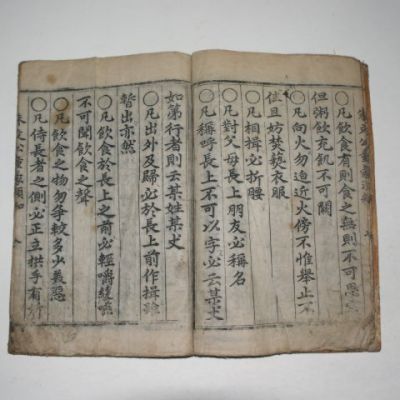 ○凡飲食有則食之無則不可思索
但粥飲充飢不可闕
○凡向火勿迫近火傍不惟舉止不
佳且妨焚爇衣服
○凡相揖必折腰
○凡對父母長上朋友必稱名
○凡稱呼長上不可以字必云某丈
如第行者則云某姓某丈
○凡出外及歸必於長上前作揖雖
暫出亦然
○凡飲食於長上之前必輕嚼緩嚥
不可聞飲食之聲
○凡飲食之物勿爭較多少美惡
○凡侍長者之側必正立拱手有所
朱文公童蒙須知